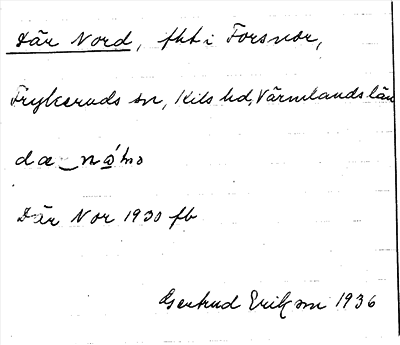 Där Nord, fht i Forsnor,
Frykeruds sn, Kils hd, Värmlands län
Där Nor 1930 fb
Gertrud Erikson 1936